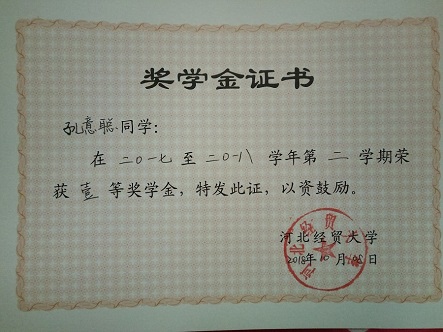 奖学金证书
孔意聪同学:
在 二〇一七 至 二〇一八 学年第 二 学期荣
获 壹 等奖学金,特发此证,以资鼓励。
河北经贸大学
2018年10月 日